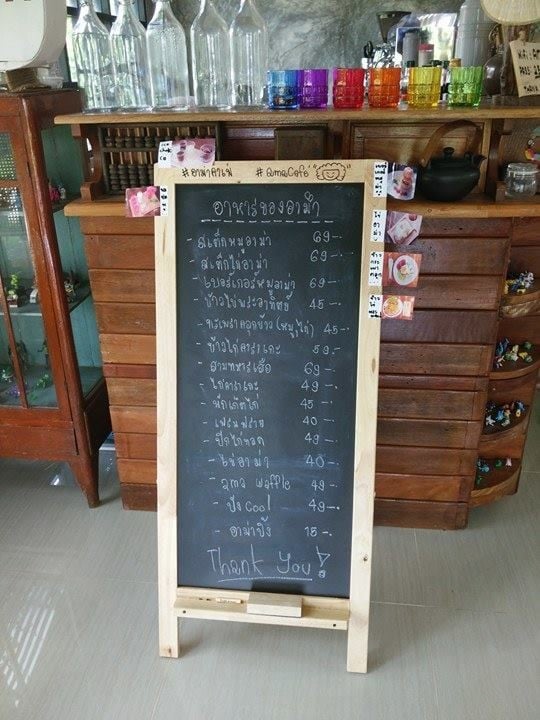 #อาม่าคาเฟ่ #AmaCafé
อาหารของอาม่า
- สเต็กหมูอาม่า 69.-
- สเต็กไก่อาม่า 69.-
- เบอร์เกอร์หมูอาม่า 69.-
- ข้าวไข่พระอาทิตย์ 45.-
- กะเพราคลุกข้าว (หมู,ไก่) 45.-
- ข้าวไก่คาราเกะ 59.-
- สามทหารเสือ 69.-
- ไก่คาราเกะ 49.-
- นักเก็ตไก่ 45.-
- เฟรนฟราย 40.-
- ปีกไก่ทอด 49.-
- ไข่อาม่า 40.-
- ama waffle 49.-
- ปังcool 49.-
- อาม่าปิ้ง 15.-
Thank You!